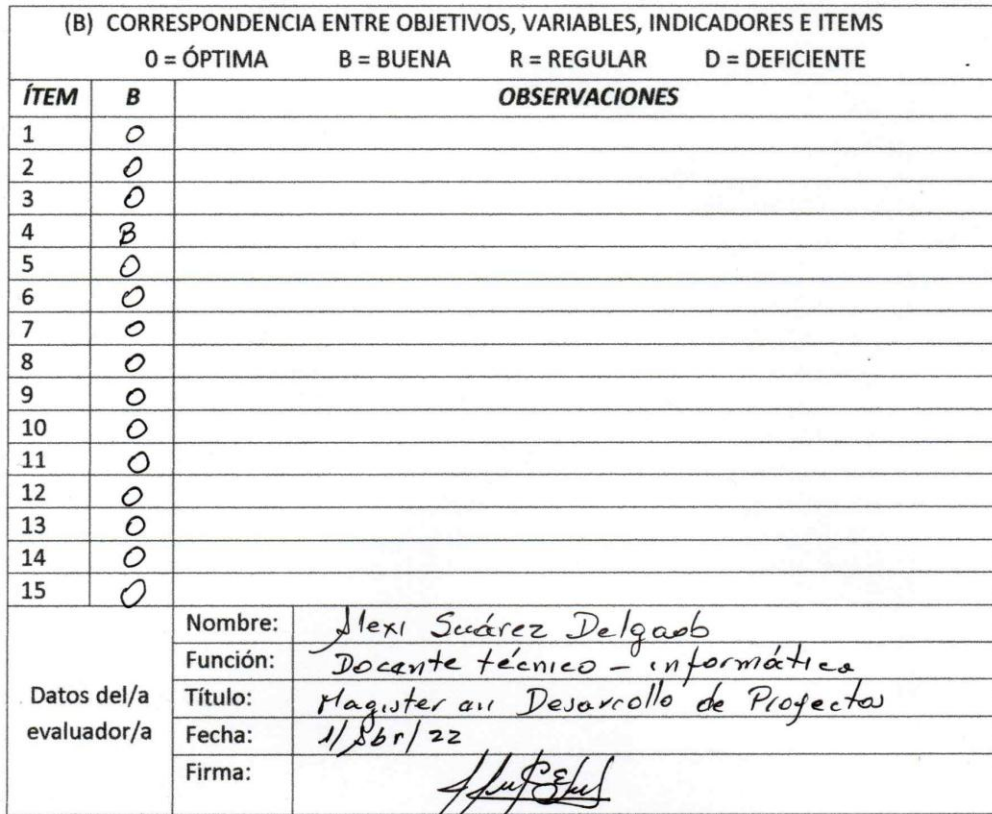 (B) CORRESPONDENCIA ENTRE OBJETIVOS, VARIABLES, INDICADORES E ITEMS
0 = ÓPTIMA B = BUENA R = REGULAR D = DEFICIENTE
ÍTEM B OBSERVACIONES
1 O
2 O
3 O
4 B
5 O
6 O
7 O
8 O
9 O
10 O
11 O
12 O
13 O
14 O
15 O
Datos del/a evaluador/a
Nombre: Alexi Suárez Delgado
Función: Docente técnico - informática
Título: Magister en Desarrollo de Proyectos
Fecha: 1/Abr/22
Firma: